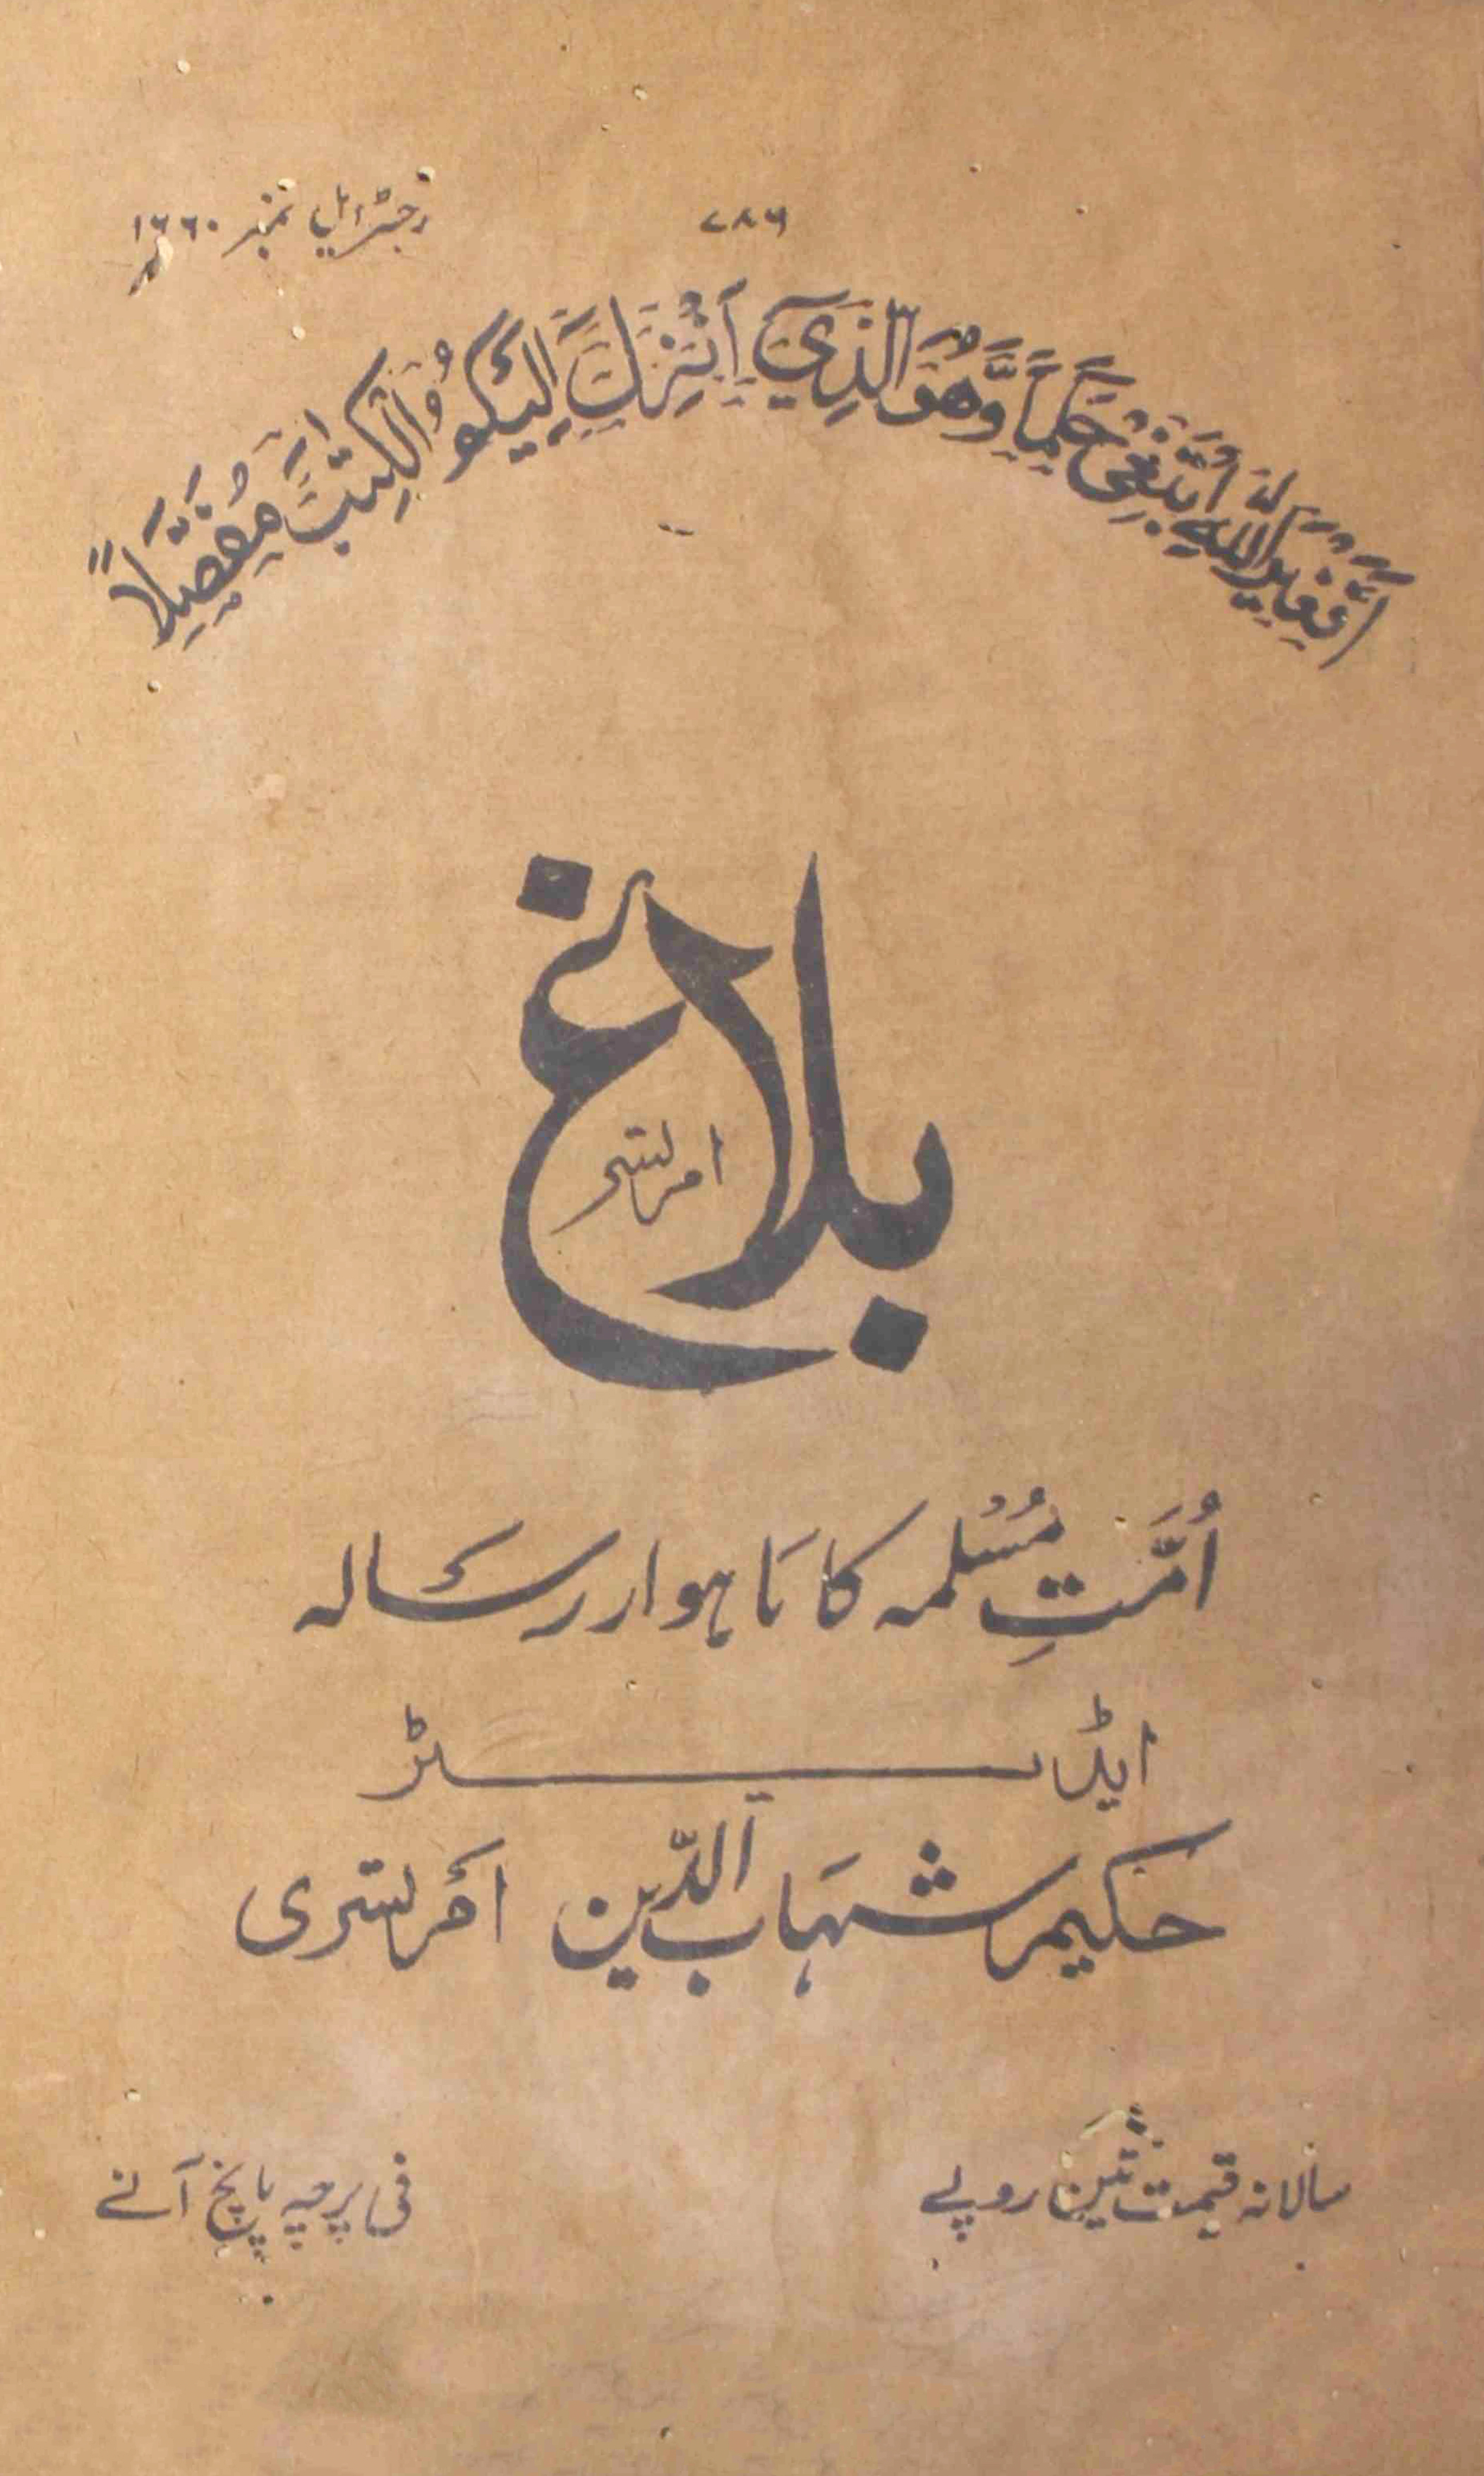 ۷۸۶
رجسٹرڈ ایل نمبر ۱۶۶۰
أَفَغَيْرَ اللّٰهِ أَبْتَغِي حَكَمًا وَّهُوَ الَّذِيْ أَنْزَلَ إِلَيْكُمُ الْكِتٰبَ مُفَصَّلًا
بلاغ
امرتسر
اُمَّتِ مُسْلمہ کا مَاہوار رسَالہ
ایڈیٹر
حکیم شہَاب الدّین امَرتسری
سالانہ قیمت تین روپے
فی پرچہ پانچ آنے